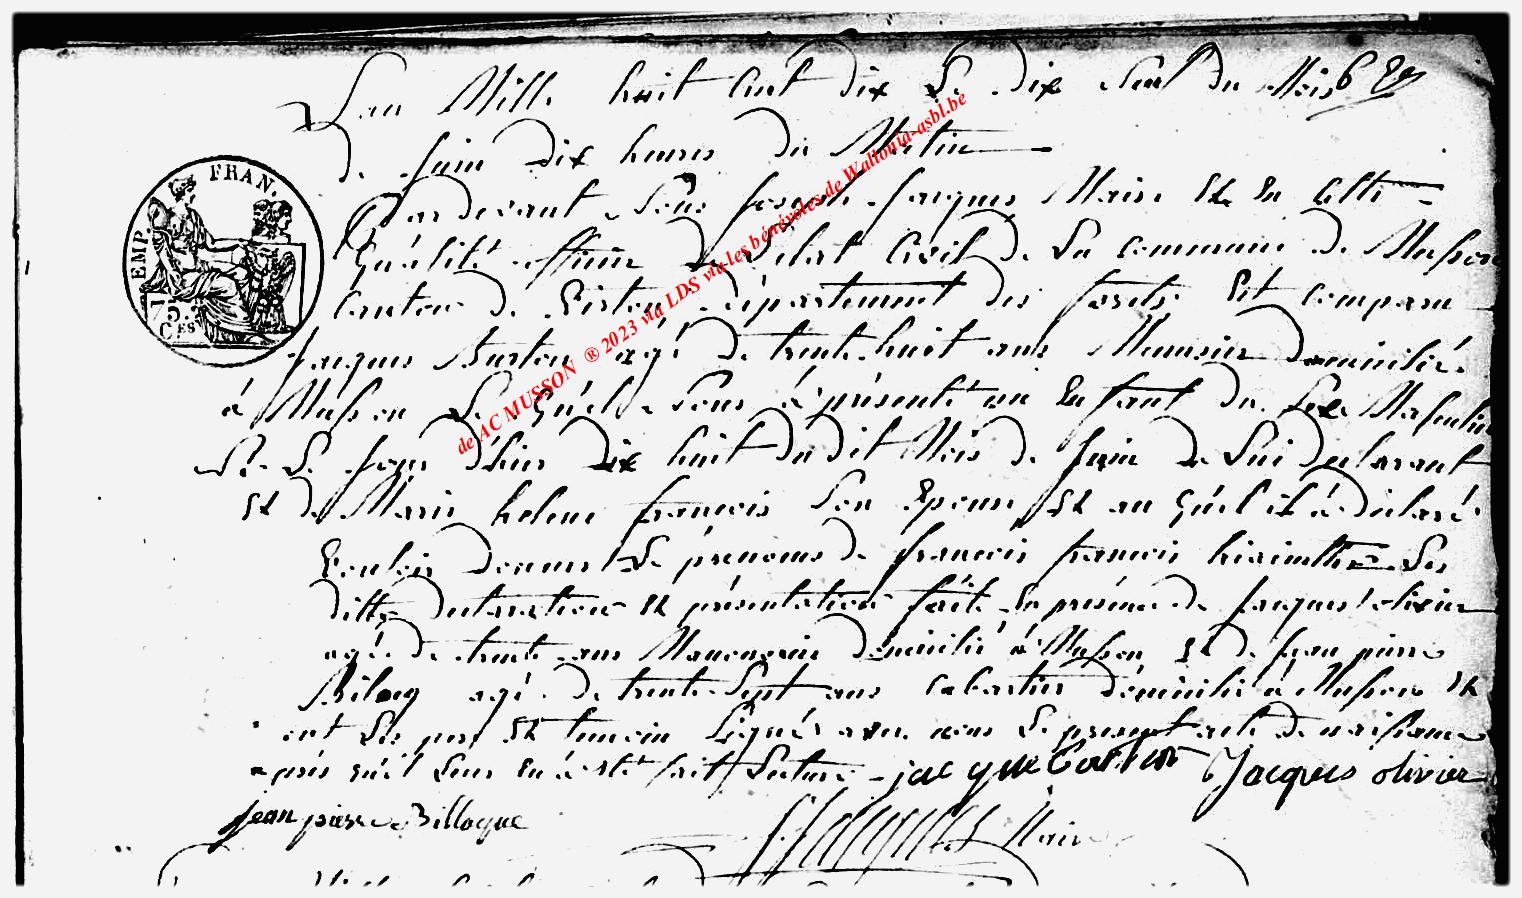 L'an Mille huit Cent dix Le dix Sept du Mois
de Juin dix heures du Matin
Pardevant Nous Joseph Jacques Maire Et En Cette
Qualité officier de L'etat Civil de La commune de Musson
Canton de Virton département des forets Est comparu
Jacques Burton agé de trente huit ans Meunsier domicilié
à Musson Le Quel Nous à présenté un Enfant du Sexe Masculin
Né Le Jour d'hier dix huit du dit Mois de Juin de Lui Declarant
Et de Marie helene francois Son Epouse Et au Quel il à déclaré
Vouloir donner Le prenoms de francois francois hiacinthe Les
dittes declaration Et présentation fait En présence de Jacques olivier
agé de trente ans Manouvrier domicilié à Musson Et de Jean pierre
Bilocq agé de trente Sept ans Cabartier domicilié à Musson Et
ont Les per Et temoin Signés avec nous Le present acte de naissance
après qu'il Leur En à eté fait Lecture
Jacques olivier
jean pierre Billoque
Maire
EMP. FRAN.
75.
CES
de AC MUSSON ® 2023 via LDS via les bénévoles de Wallonia-asbl.be